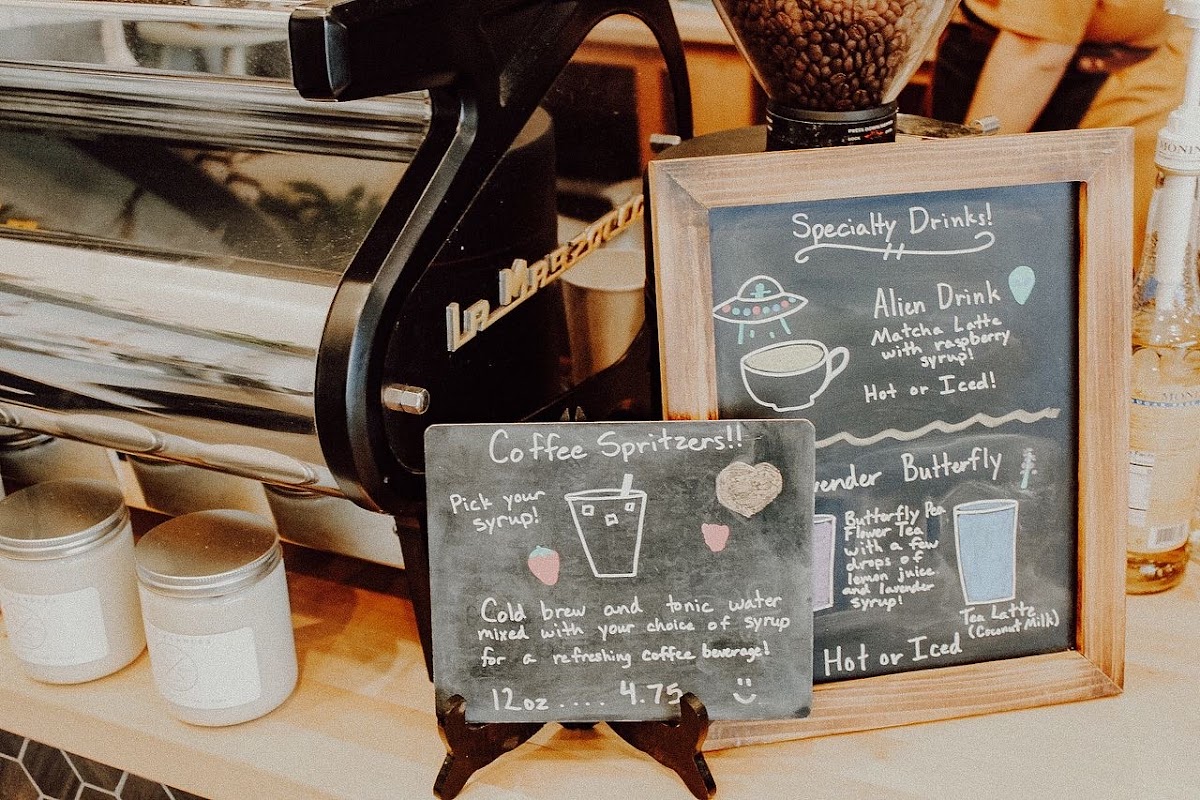 La Marzocco
PRESS DOWN
LOCK
MONIN
Specialty Drinks!
Alien Drink
Matcha Latte
with raspberry
syrup!
Hot or Iced!
Butterfly
Butterfly Pea
Flower Tea
with a few
drops of
lemon juice
and lavender
syrup!
Tea Latte
(Coconut Milk)
Hot or Iced
Coffee Spritzers!!
Pick your
syrup!
Cold brew and tonic water
mixed with your choice of syrup
for a refreshing coffee beverage!
12oz .... 4.75